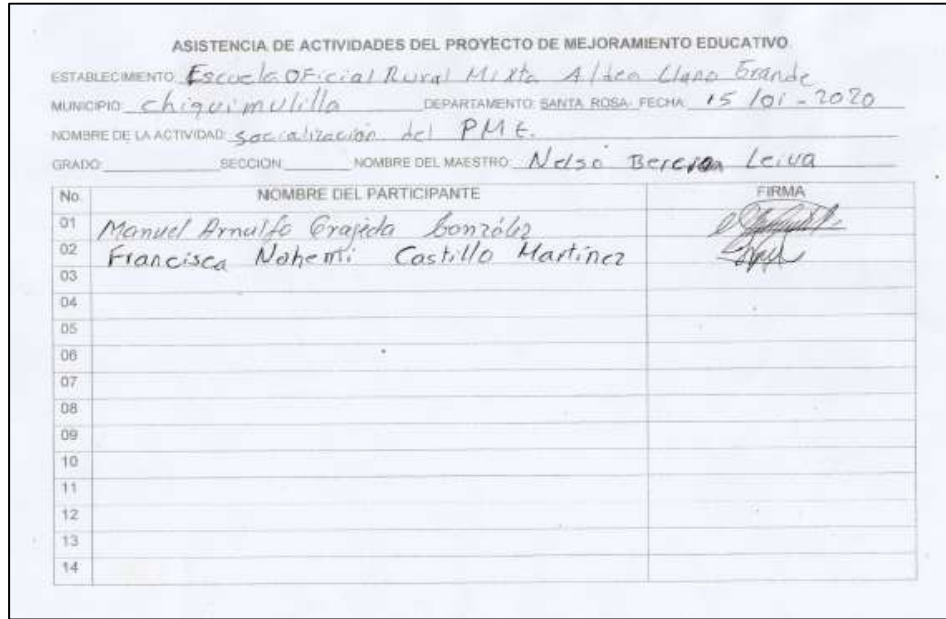 ASISTENCIA DE ACTIVIDADES DEL PROYECTO DE MEJORAMIENTO EDUCATIVO
ESTABLECIMIENTO: Escuela OFicial Rural Mixta Aldea Llano Grande
MUNICIPIO: chiquimulilla DEPARTAMENTO: SANTA ROSA- FECHA: 15 /01 - 2020
NOMBRE DE LA ACTIVIDAD: socialización del PME.
GRADO: SECCION NOMBRE DEL MAESTRO: Nelso Leiva
No. NOMBRE DEL PARTICIPANTE FIRMA
01 Manuel Arnulfo Grajeda González
02 Francisca Nohemi Castillo Martínez
03
04
05
06
07
08
09
10
11
12
13
14